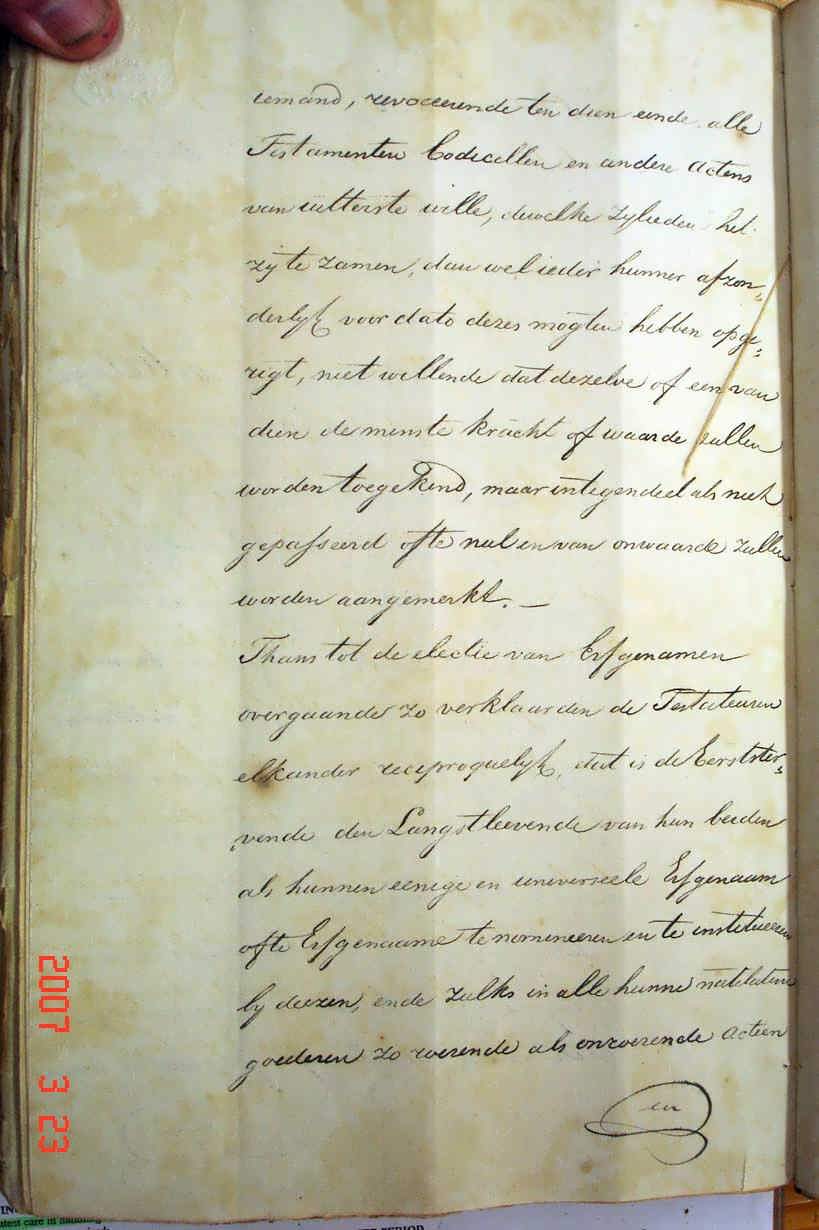 iemand, revoceerende ten dien einde alle
Testamenten Codicellen en andere Actens
van uitterste wille, dewelke zylieden het
zy te zamen, dan wel ieder hunner afzon„
derlyk voor dato dezes mogten hebben opge„
rigt, niet willende dat dezelve of een van
dien de minste kracht of waarde zullen
worden toegekend, maar integendeel als niet
gepasseerd ofte nul en van onwaarde zullen
worden aangemerkt. —
Thans tot de electie van Erfgenamen
overgaande zo verklaarden de Testateuren
elkander reciproquelyk, dat is de Eerstster„
„vende den Langstleevende van hun beiden
als hunnen eenige en universeele Erfgenaam
ofte Erfgenaame te nomineeren en te institueeren
by deezen, ende zulks in alle hunne natelatene
goederen zo roerende als onroerende actien
en
2007 3 23
PERIOD